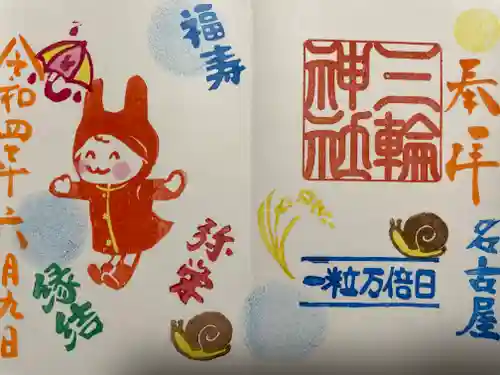 奉拝
名古屋
三輪神社
一粒万倍日
福寿
弥栄
縁結
令和四年六月九日